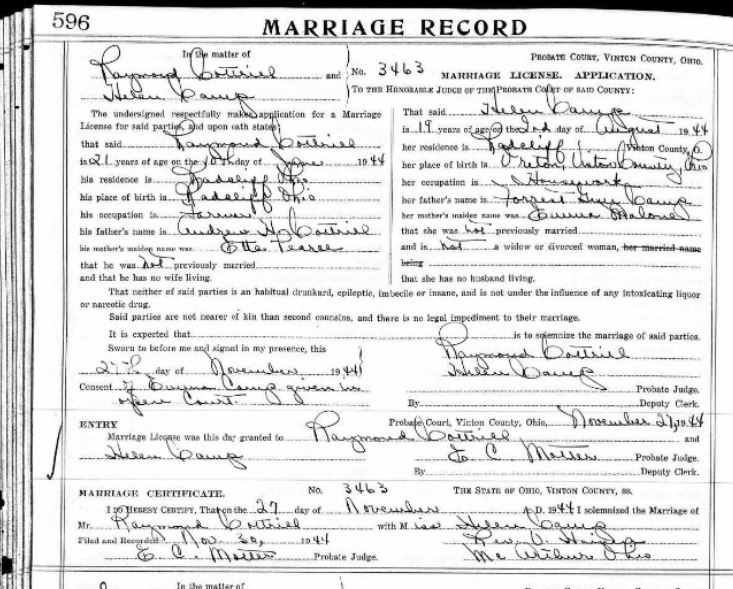 596 MARRIAGE RECORD
In the matter of
Raymond Cottriel and
Helen Camp
No. 3463
PROBATE COURT, VINTON COUNTY, OHIO.
MARRIAGE LICENSE. APPLICATION.
TO THE HONORABLE JUDGE OF THE PROBATE COURT OF SAID COUNTY:
The undersigned respectfully makes application for a Marriage
License for said parties, and upon oath states:
that said Raymond Cottriel
is 21 years of age on the day of June 1944
his residence is Radcliff Ohio
his place of birth is Radcliff Ohio
his occupation is Farmer
his father's name is Andrew H. Cottriel
his mother's maiden name was Etta Pearce
that he was not previously married
and that he has no wife living.
That said Helen Camp
is 19 years of age on the 2nd day of August 1944
her residence is Radcliff Vinton County, O.
her place of birth is Vinton County, Ohio
her occupation is Housework
her father's name is Forrest Camp
her mother's maiden name was Emma Malone
that she was not previously married
and is not a widow or divorced woman, her married name
being
that she has no husband living.
That neither of said parties is an habitual drunkard, epileptic, imbecile or insane, and is not under the influence of any intoxicating liquor
or narcotic drug.
Said parties are not nearer of kin than second cousins, and there is no legal impediment to their marriage.
It is expected that is to solemnize the marriage of said parties.
Sworn to before me and signed in my presence, this
27th day of November 1944
Consent of Emma Camp given in
open Court
Raymond Cottriel
Helen Camp
Probate Judge.
By Deputy Clerk.
ENTRY
Probate Court, Vinton County, Ohio, November 27, 1944
Marriage License was this day granted to Raymond Cottriel and
Helen Camp
E. C. Motter Probate Judge.
By Deputy Clerk.
MARRIAGE CERTIFICATE. No. 3463 THE STATE OF OHIO, VINTON COUNTY, SS.
I DO HEREBY CERTIFY, That on the 27 day of November A.D. 1944 I solemnized the Marriage of
Mr. Raymond Cottriel with Miss Helen Camp
Filed and Recorded Nov. 30, 1944
Rev. O.
E. C. Motter Probate Judge.
Mc Arthur Ohio
In the matter of